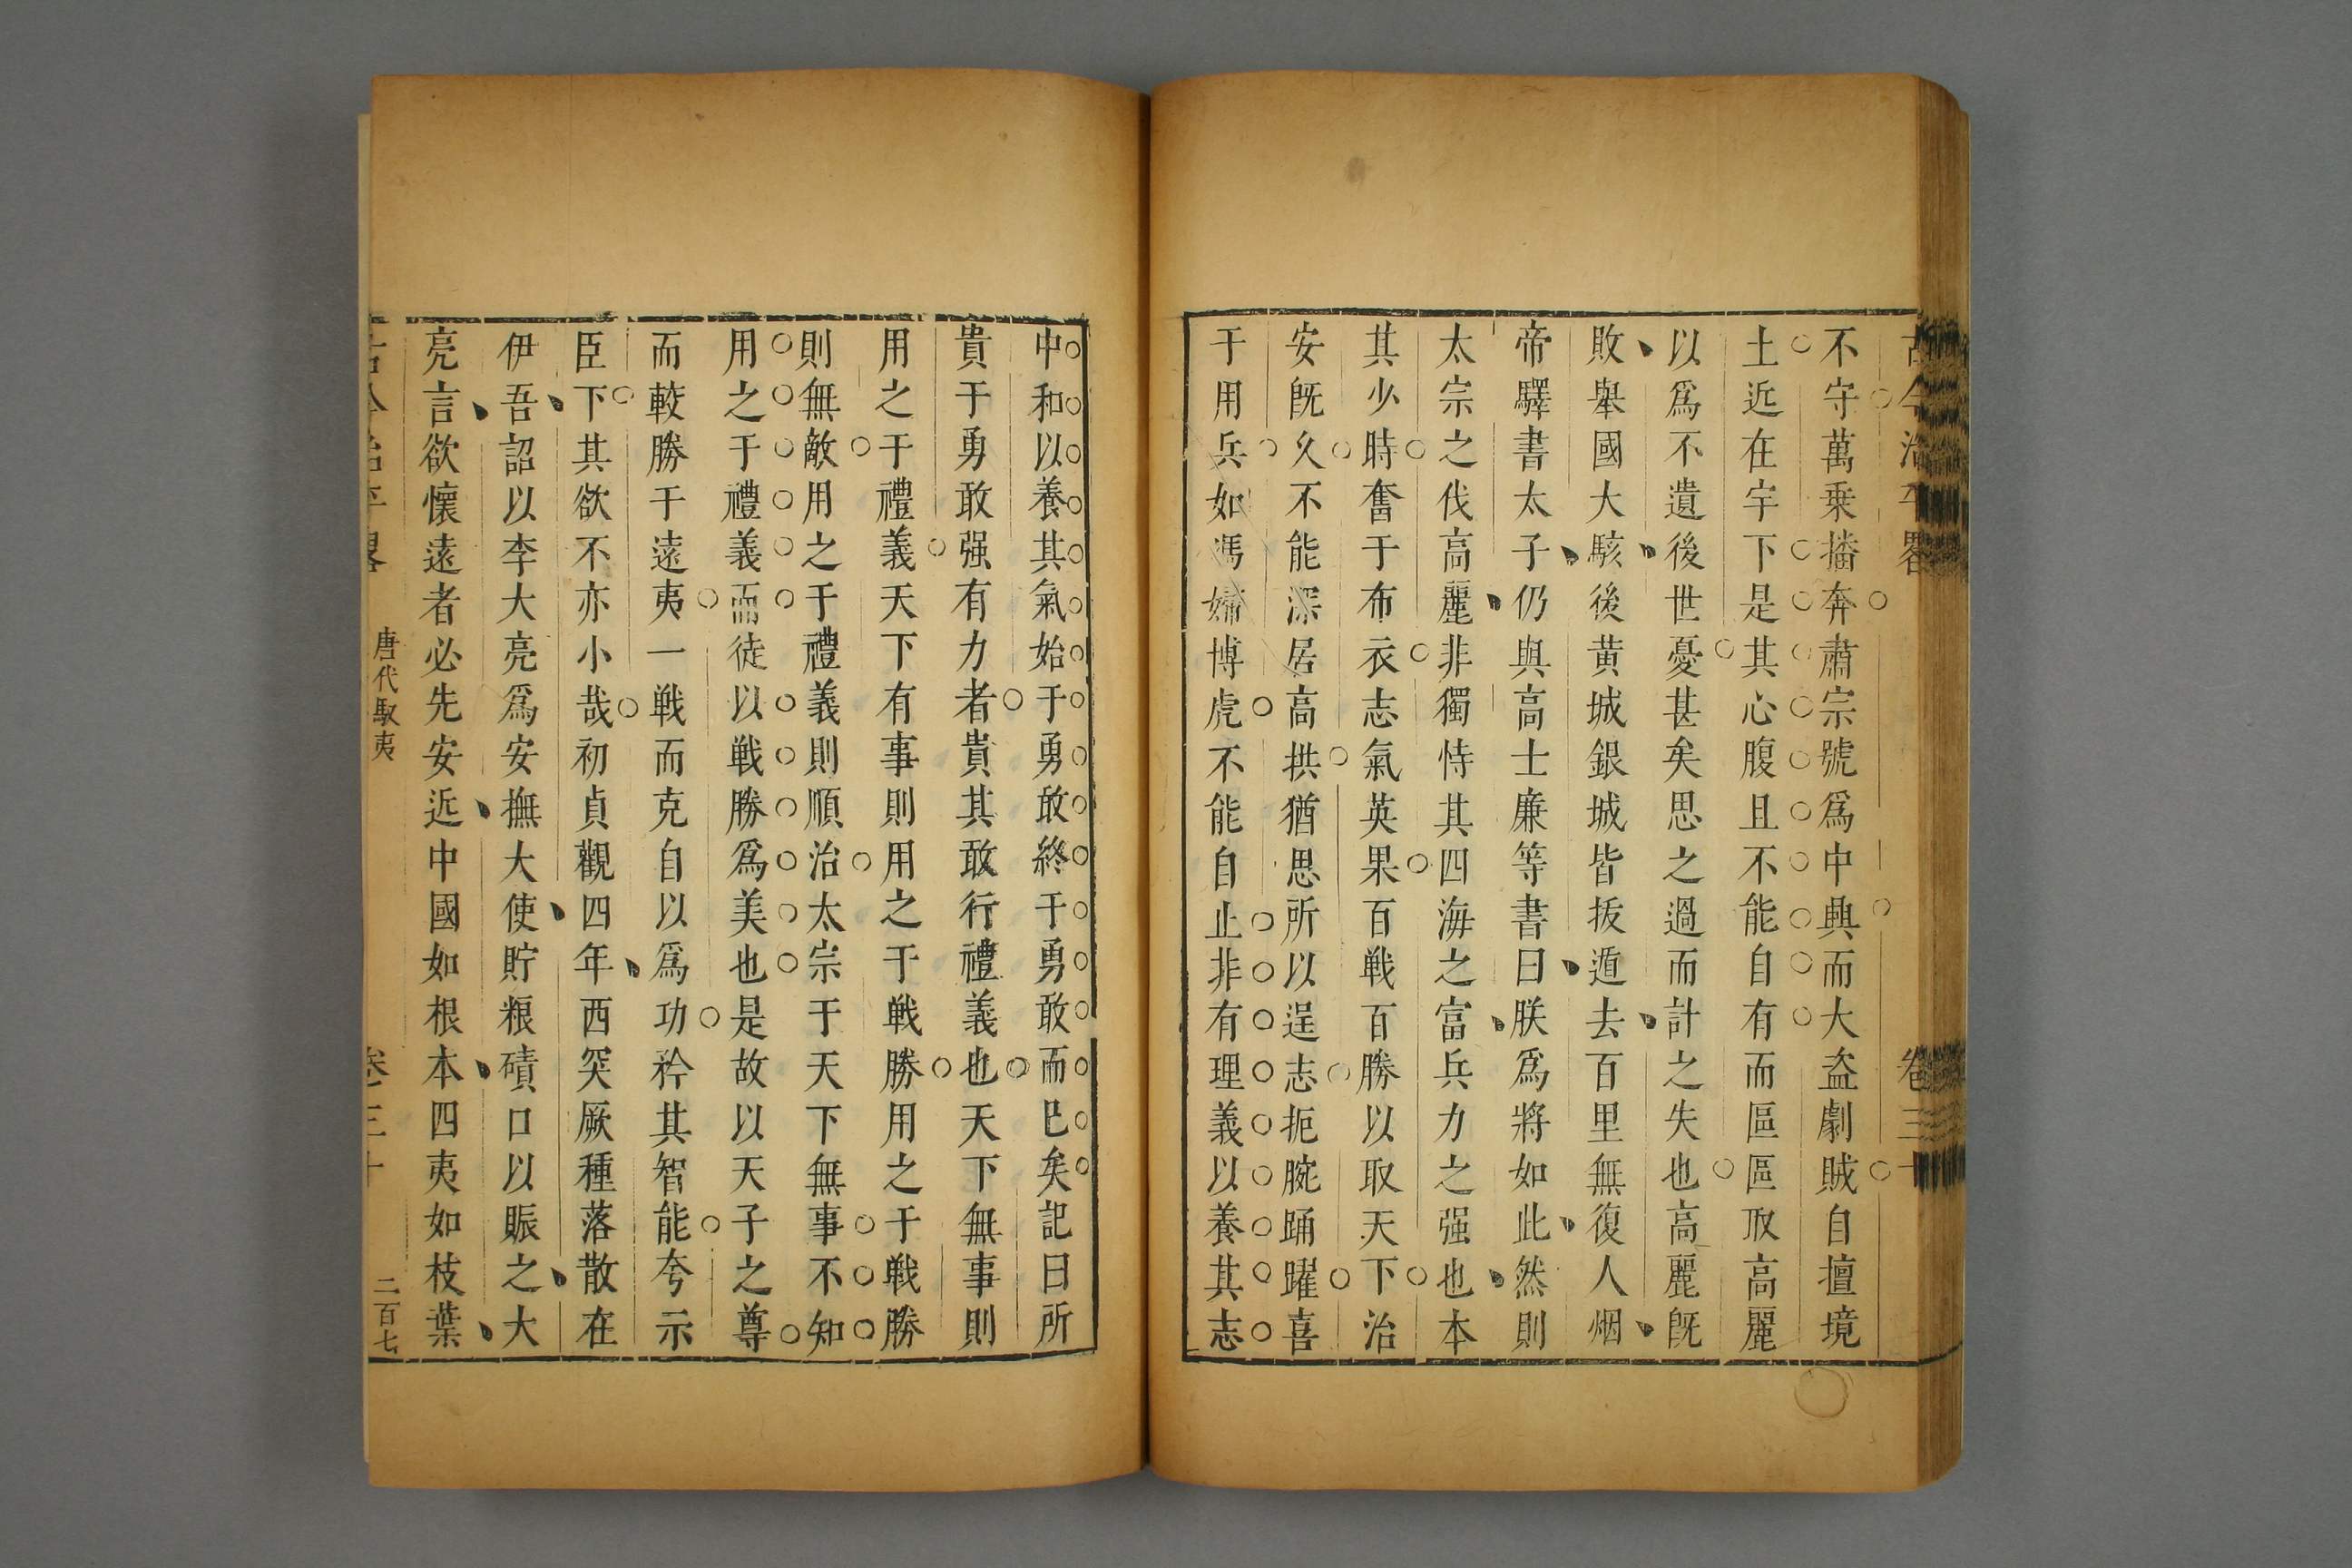 古今治平畧
卷三十
不守萬乗播奔肅宗號爲中興而大盗劇賊自擅境
土近在宇下是其心腹且不能自有而區區取高麗
以爲不遺後世憂甚矣思之過而計之失也高麗旣
敗舉國大駭後黄城銀城皆拔遁去百里無復人烟
帝驛書太子仍與高士廉等書曰朕爲將如此然則
太宗之伐高麗非獨恃其四海之富兵力之强也本
其少時奮于布衣志氣英果百戦百勝以取天下治
安旣久不能深居高拱猶思所以逞志扼腕踊躍喜
于用兵如馮婦博虎不能自止非有理義以養其志
中和以養其氣始于勇敢終于勇敢而巳矣記曰所
貴于勇敢强有力者貴其敢行禮義也天下無事則
用之于禮義天下有事則用之于戦勝用之于戦勝
則無敵用之于禮義則順治太宗于天下無事不知
用之于禮義而徒以戦勝爲美也是故以天子之尊
而較勝于遠夷一戦而克自以爲功矜其智能夸示
臣下其欲不亦小哉初貞觀四年西突厥種落散在
伊吾詔以李大亮爲安撫大使貯粮磧口以賑之大
亮言欲懷遠者必先安近中國如根本四夷如枝葉
古今治平畧
唐代馭夷
卷三十
二百七